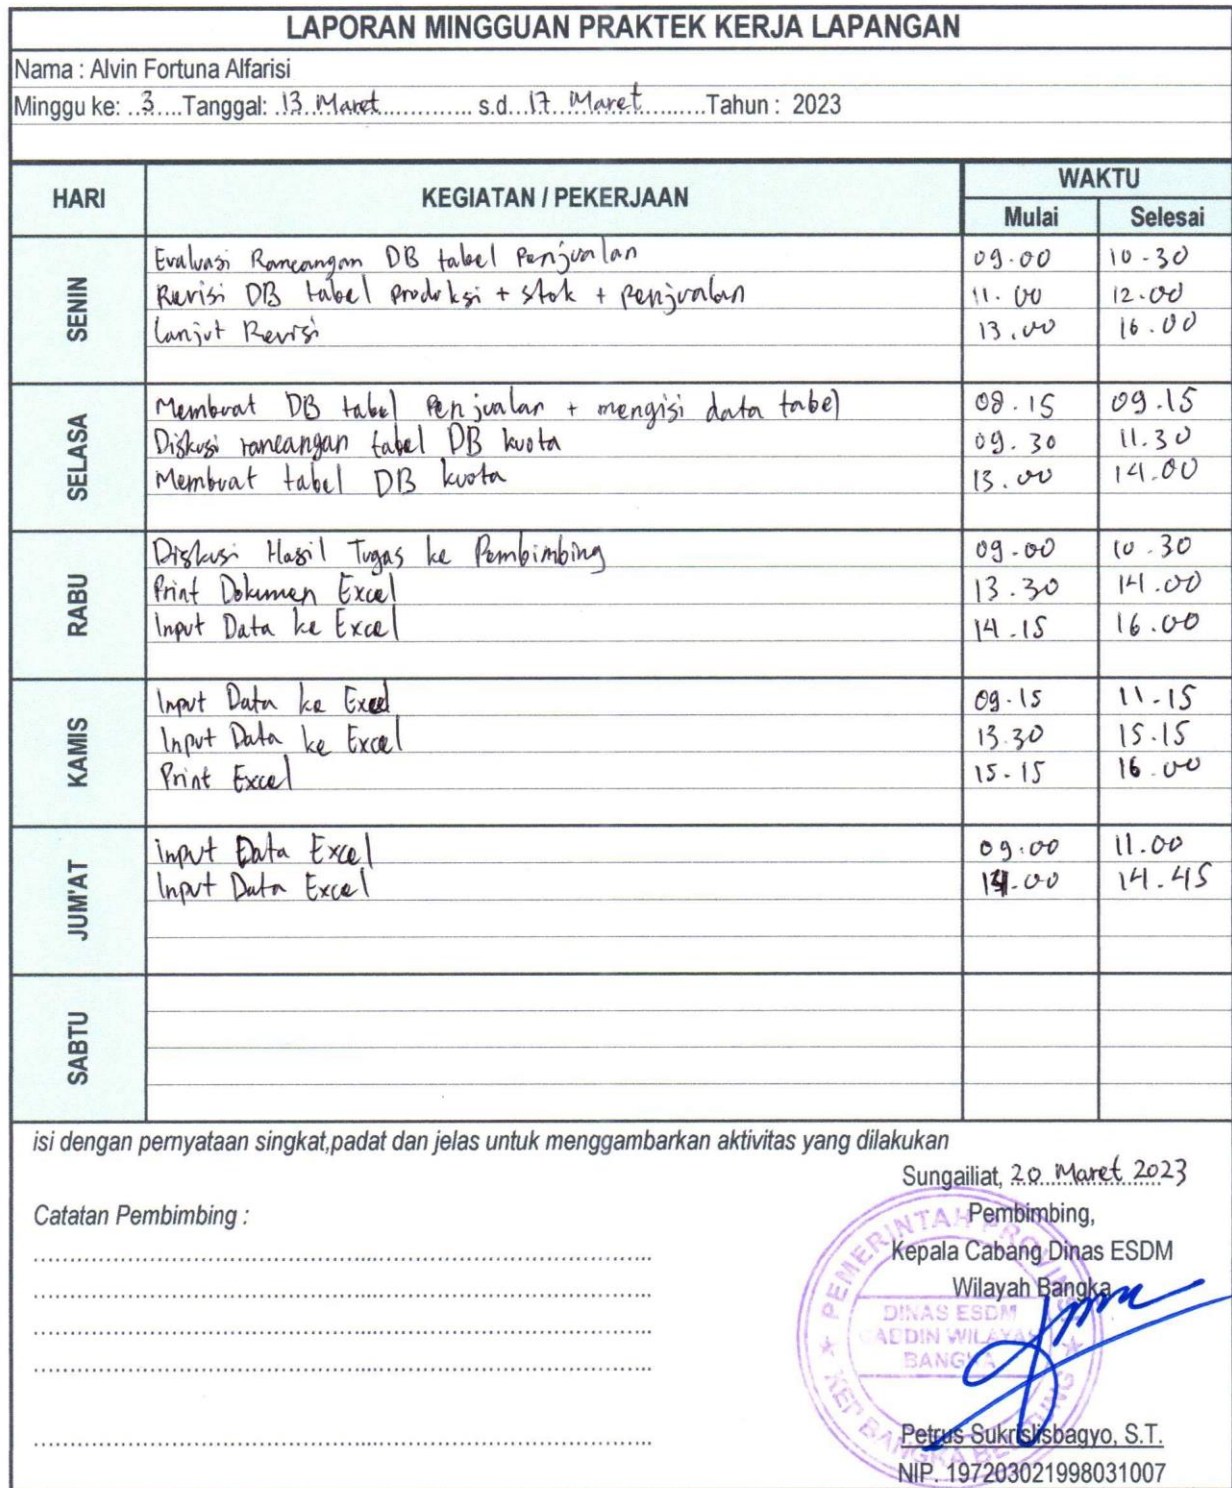 LAPORAN MINGGUAN PRAKTEK KERJA LAPANGAN
Nama : Alvin Fortuna Alfarisi
Minggu ke: ..3....Tanggal: .13. Maret.............. s.d...17. Maret..........Tahun : 2023
HARI KEGIATAN / PEKERJAAN WAKTU
Mulai Selesai
SENIN
Evaluasi Rancangan DB tabel Penjualan 09.00 10-30
Revisi DB tabel produksi + stok + penjualan 11.00 12.00
lanjut Revisi 13.00 16.00
SELASA
Membuat DB tabel Penjualan + mengisi data tabel 08.15 09.15
Diskusi rancangan tabel DB kuota 09.30 11.30
Membuat tabel DB kuota 13.00 14.00
RABU
Diskusi Hasil Tugas ke Pembimbing 09.00 10.30
Print Dokumen Excel 13.30 14.00
Input Data ke Excel 14.15 16.00
KAMIS
Input Data ke Excel 09.15 11.15
Input Data ke Excel 13.30 15.15
Print Excel 15.15 16.00
JUM'AT
input Data Excel 09.00 11.00
Input Data Excel 14.00 14.45
SABTU
isi dengan pernyataan singkat,padat dan jelas untuk menggambarkan aktivitas yang dilakukan
Sungailiat, 20 Maret 2023
Catatan Pembimbing :
Pembimbing,
Kepala Cabang Dinas ESDM
Wilayah Bangka
PEMERINTAH PROVINSI
DINAS ESDM
CABDIN WILAYAH
BANGKA
KEP BANGKA BELITUNG
Petrus Sukrislisbagyo, S.T.
NIP. 197203021998031007